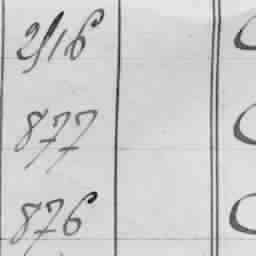 2/16
877
876